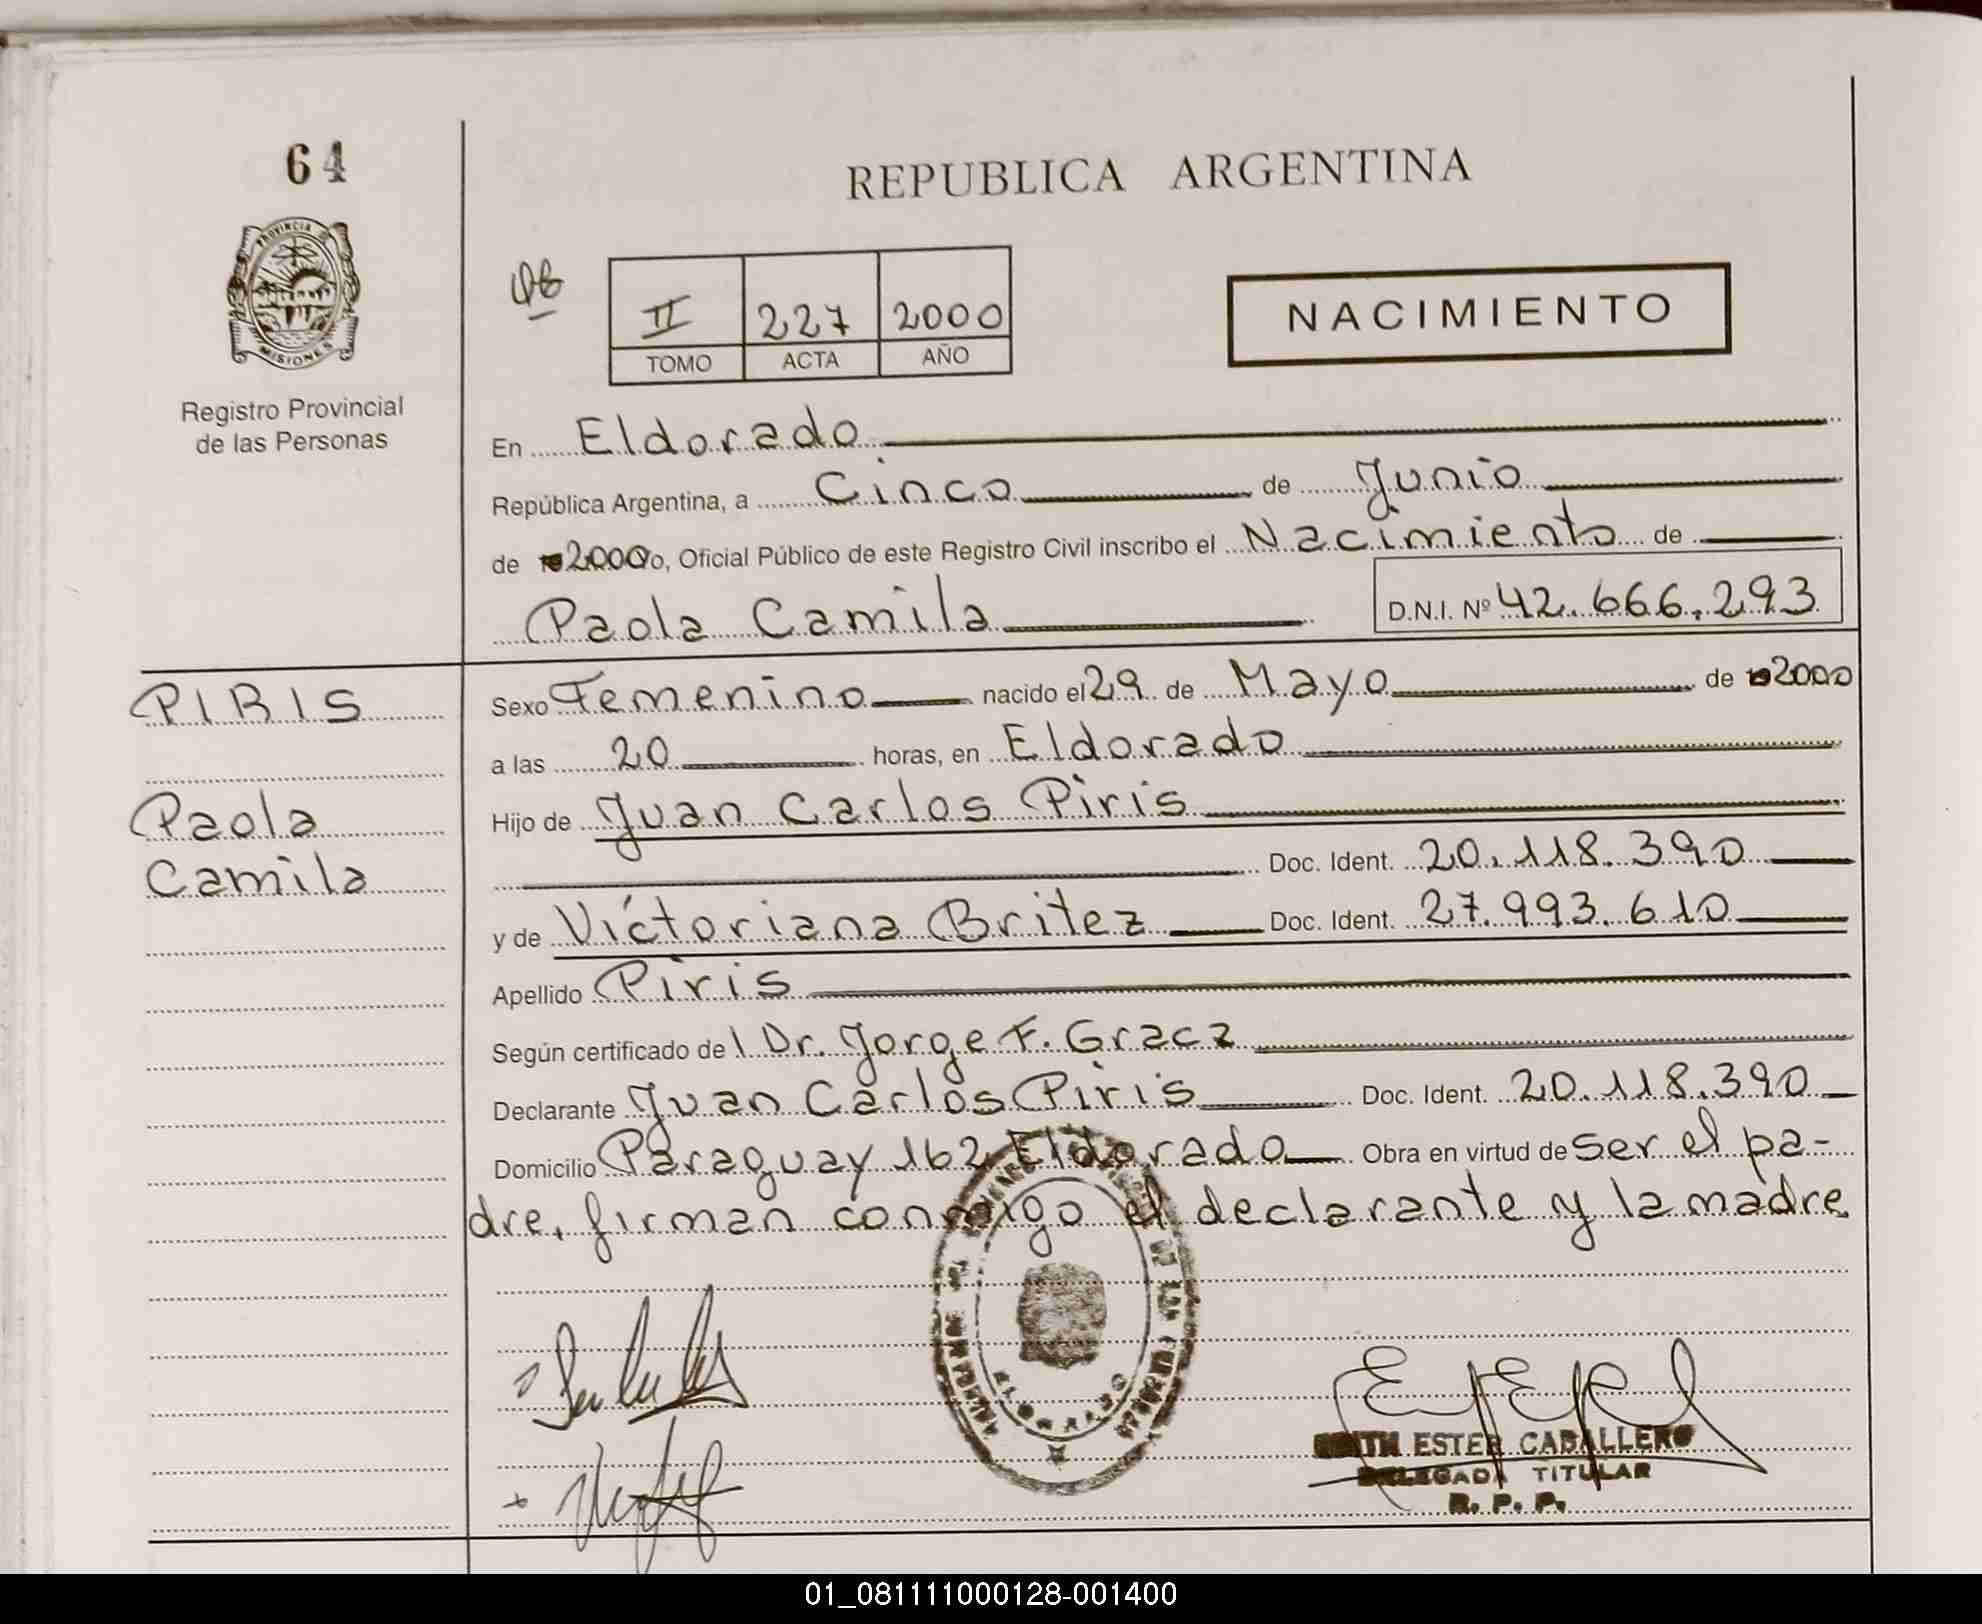 64
REPUBLICA ARGENTINA
PROVINCIA
MISIONES
Registro Provincial
de las Personas
II 227 2000
TOMO ACTA AÑO
NACIMIENTO
En Eldorado
República Argentina, a Cinco de Junio
de 2000 yo, Oficial Público de este Registro Civil inscribo el Nacimiento de
Paola Camila D.N.I. Nº 42.666.293
PIRIS
Paola
Camila
Sexo Femenino nacido el 29 de Mayo de 2000
a las 20 horas, en Eldorado
Hijo de Juan Carlos Piris
Doc. Ident. 20.118.390
y de Victoriana Britez Doc. Ident. 27.993.610
Apellido Piris
Según certificado del Dr. Jorge F. Gracz
Declarante Juan Carlos Piris Doc. Ident. 20.118.390
Domicilio Paraguay 162 Eldorado Obra en virtud de ser el pa-
dre, firman conmigo el declarante y la madre
ELDORADO
EDITH ESTER CABALLERO
DELEGADA TITULAR
R. P. P.
01_081111000128-001400